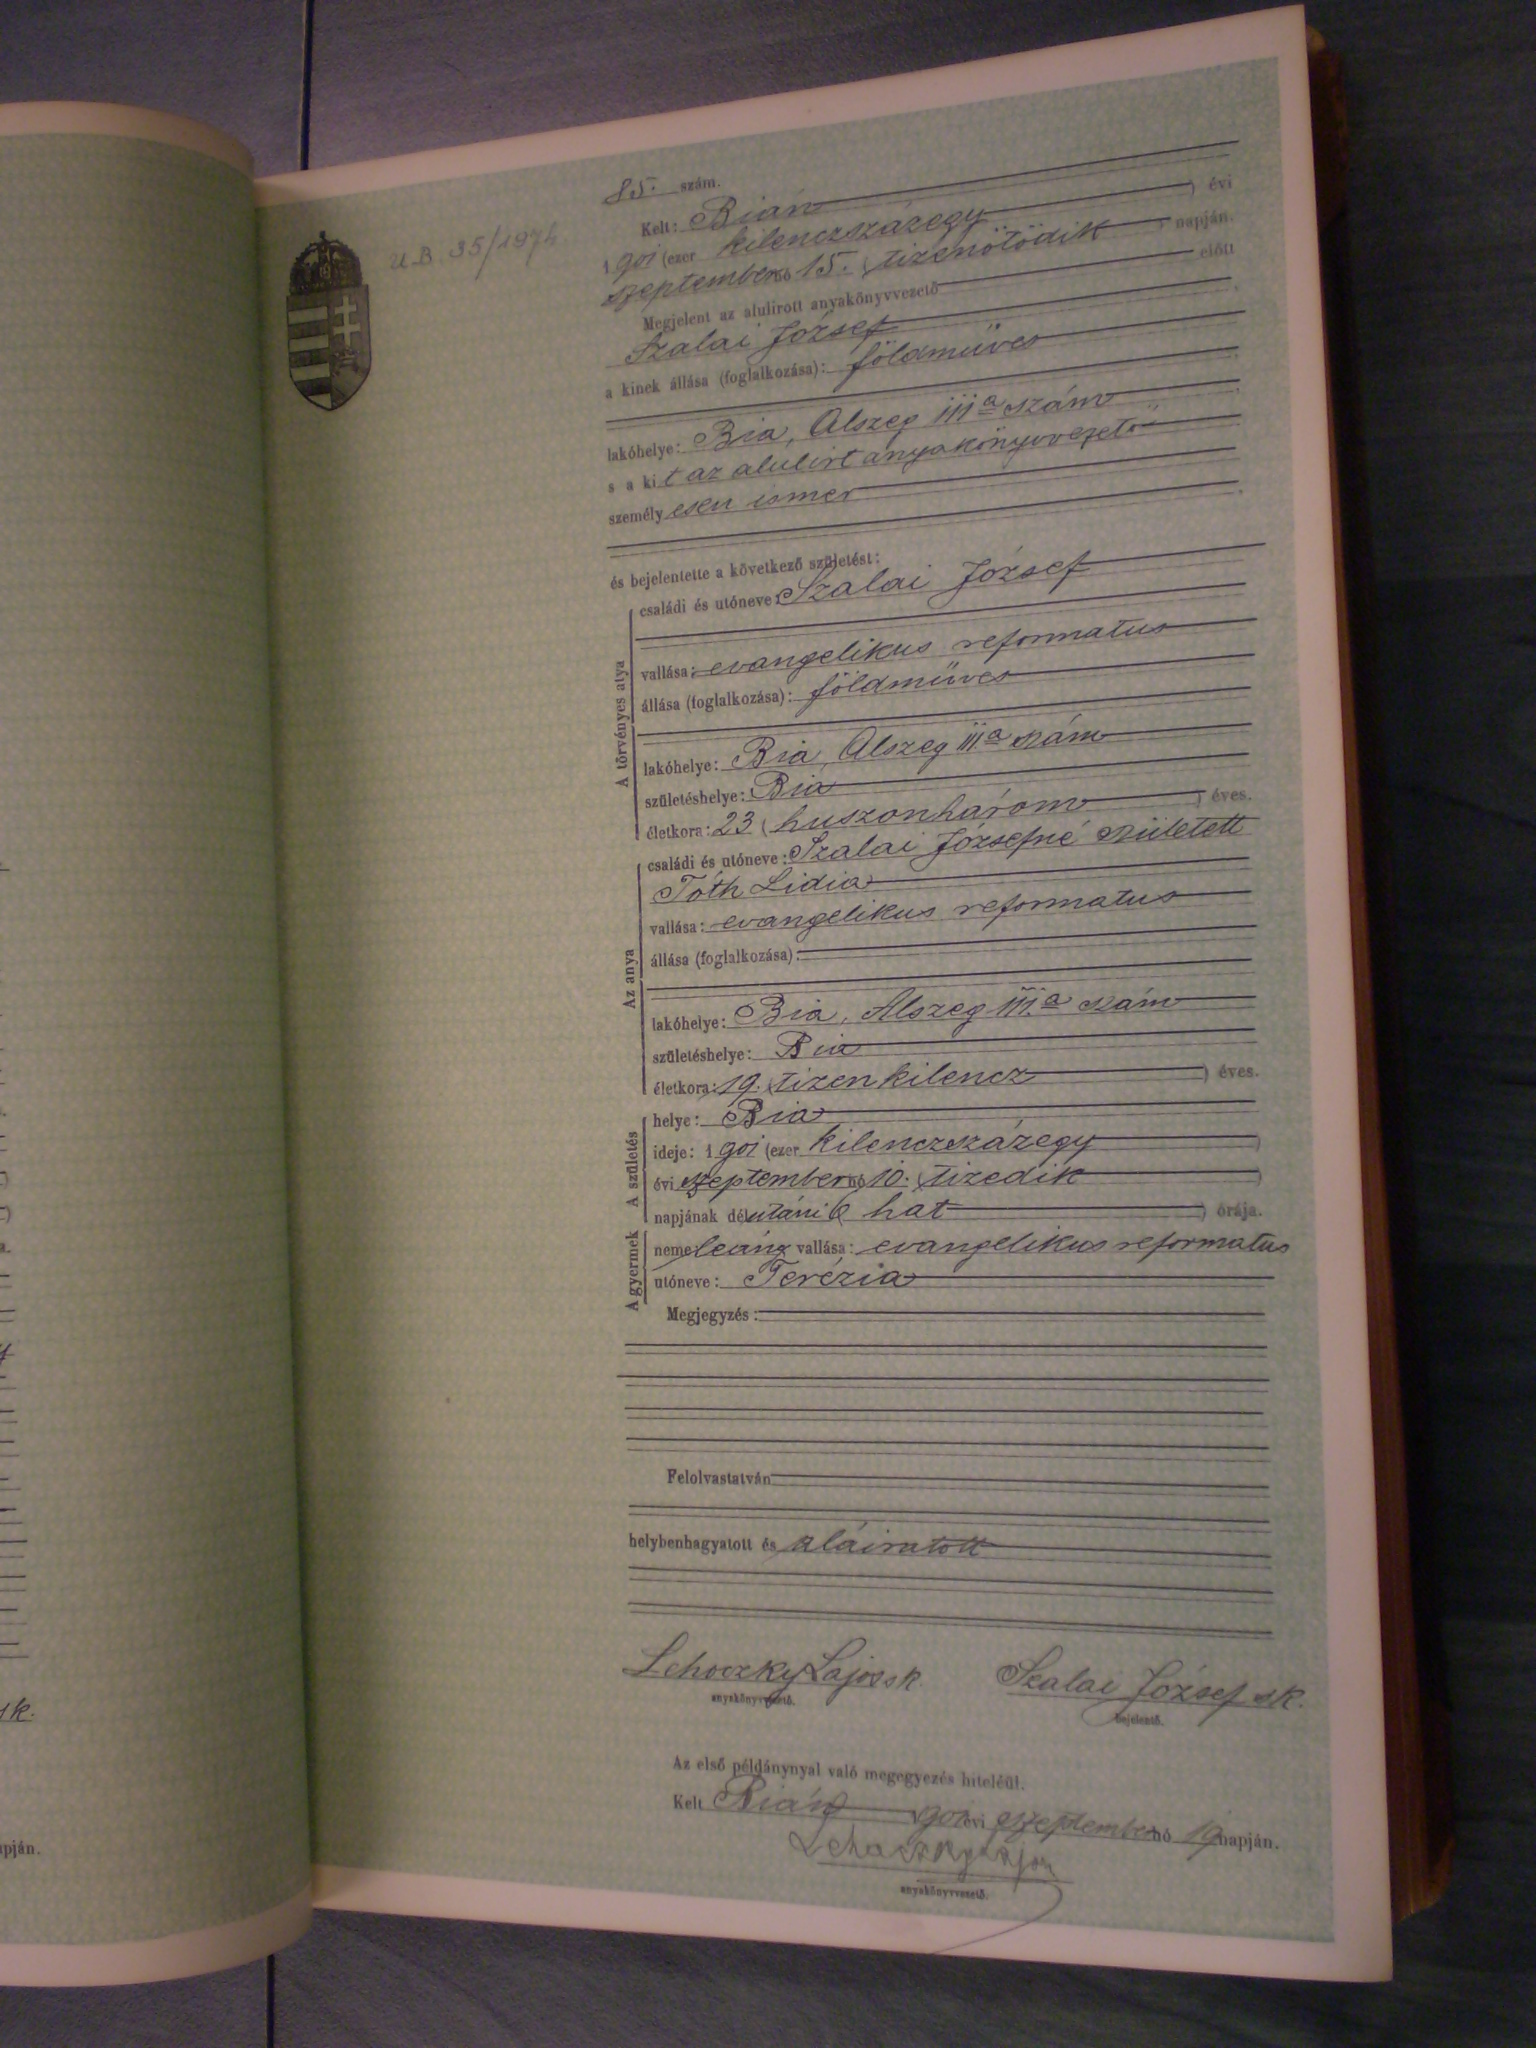 U.B. 35/1974.
85. szám.
Kelt: Bián
1901 (ezer kilenczszázegy ) évi
szeptember hó 15. (tizenötödik ) napján.
Megjelent az alulirott anyakönyvvezető előtt
Szalai József
a kinek állása (foglalkozása): földmüves
lakóhelye: Bia, Alszeg 111a szám
s a kit az alulirt anyakönyvvezető
személyesen ismer
és bejelentette a következő születést:
A törvényes atya
családi és utóneve: Szalai József
vallása: evangelikus reformatus
állása (foglalkozása): földmüves
lakóhelye: Bia, Alszeg 111a szám
születéshelye: Bia
életkora: 23 (huszonhárom ) éves.
Az anya
családi és utóneve: Szalai Józsefné született
Tóth Lidia
vallása: evangelikus reformatus
állása (foglalkozása):
lakóhelye: Bia, Alszeg 111a szám
születéshelye: Bia
életkora: 19. (tizenkilencz ) éves.
A születés
helye: Bia
ideje: 1901 (ezer kilenczszázegy )
évi szeptember hó 10. (tizedik )
napjának délutáni 6 ( hat ) órája.
A gyermek
neme leány vallása: evangelikus reformatus
utóneve: Terézia
Megjegyzés:
Felolvastatván
helybenhagyatott és aláiratott
Lehoczky Lajos sk. Szalai József sk.
anyakönyvvezető. bejelentő.
Az első példánynyal való megegyezés hiteléül.
Kelt Bián 1901 évi szeptember hó 19 napján.
Lehoczky Lajos
anyakönyvvezető.
sk.
napján.